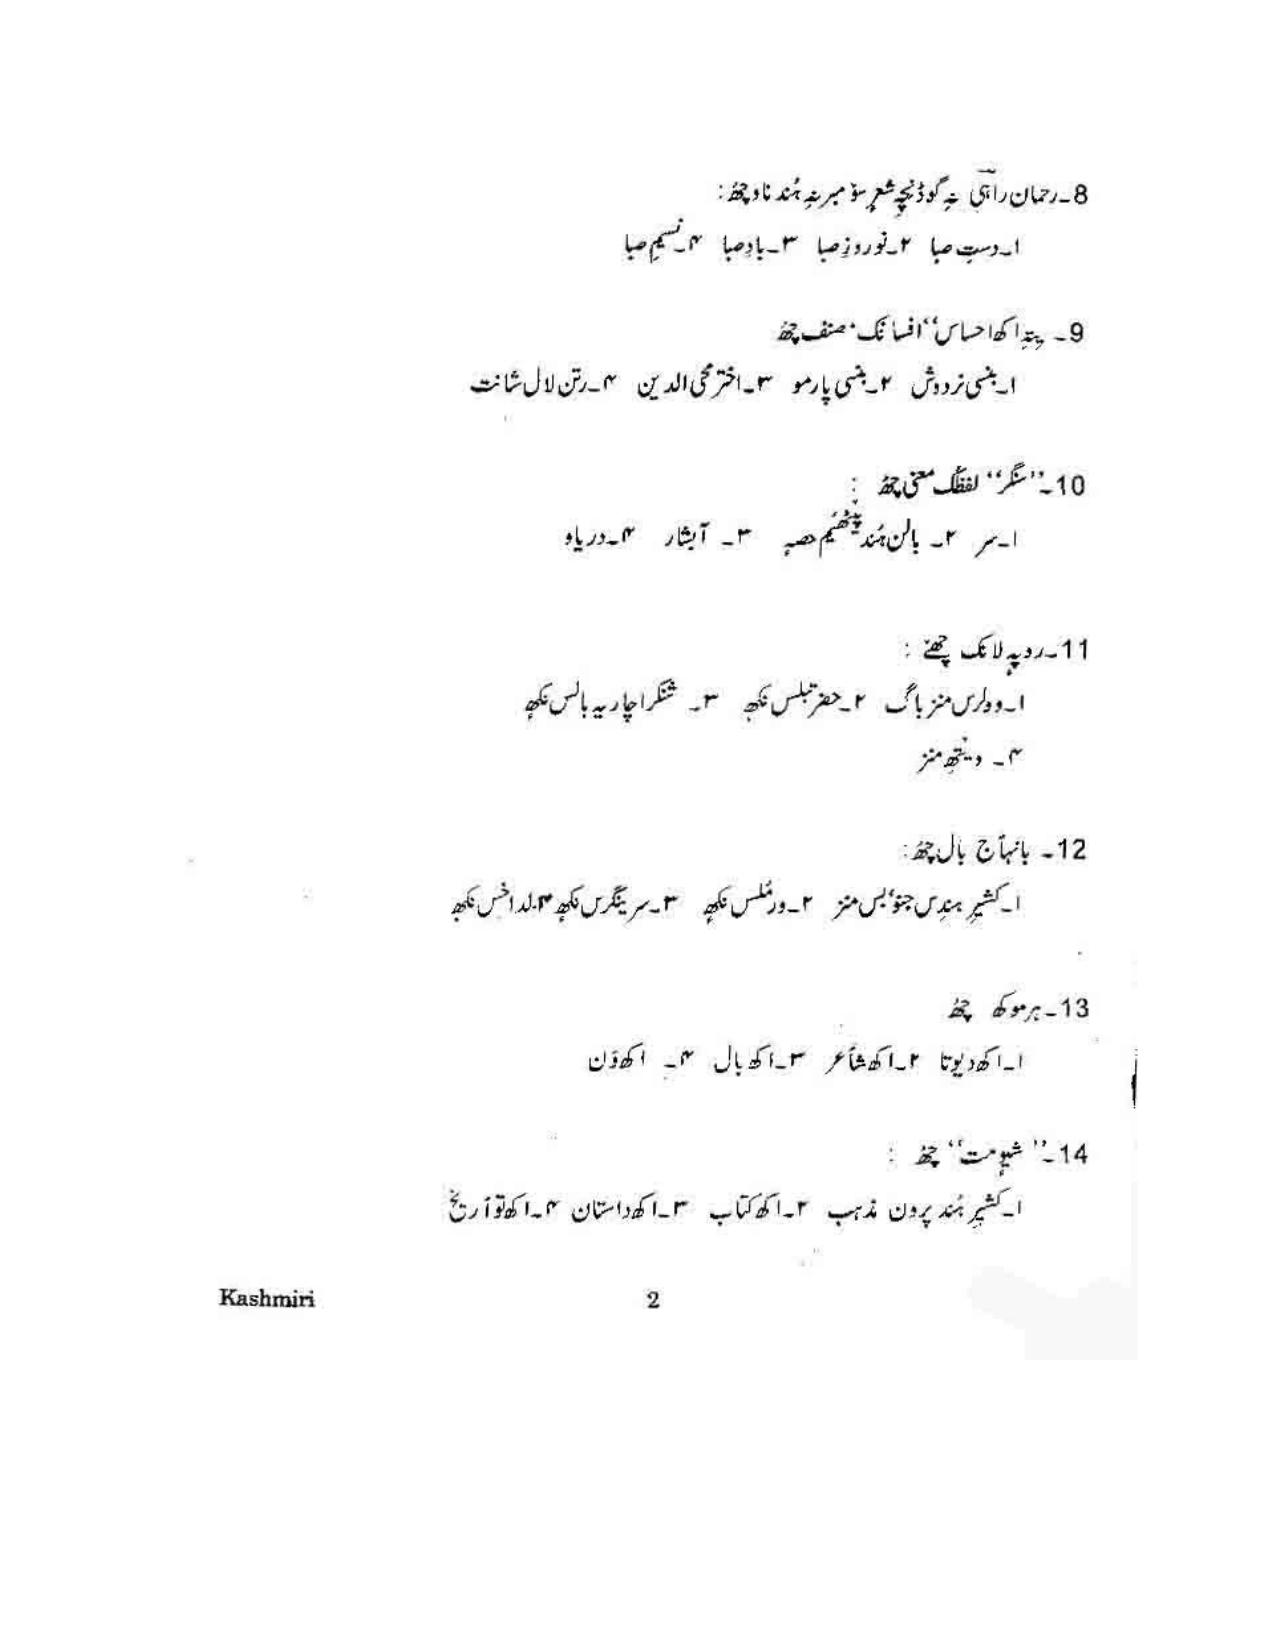 8۔رحمان راہیؔ نہِ گوڈنچہِ شعرٕ سۄمبرنہِ ہُند ناو چھُ:
۱۔دستِ صبا ۲۔نوروزِ صبا ۳۔بادِ صبا ۴۔نسیمِ صبا
9۔ یتہِ اکھ احساس‘‘افسانک مصنف چھُ
۱۔بنسی نردوش ۲۔بنسی پارمو ۳۔اختر محی الدین ۴۔رتن لال شانت
10۔’’سنگر‘‘ لفظُک معنی چھُ :
۱۔سر ۲۔ بالن ہُند پیٹھیُم حصہٕ ۳۔ آبشار ۴۔دریاو
11۔روپہٕ لانک چھےٚ :
۱۔وولرس منز باگ ۲۔حضرتبلس نکھہٕ ۳۔ شنکراچاریہ بالس نکھہٕ
۴۔ ویتھہِ منز
12۔ بانہٲج بال چھُ:
۱۔کشیرِ ہندِس جنوٗبس منز ۲۔ورمُلس نکھہٕ ۳۔سرینگرس نکھہٕ ۴۔لداخس نکھہٕ
13۔ہرموکھ چھُ
۱۔اکھ دیوتا ۲۔اکھ شٲعر ۳۔اکھ بال ۴۔ اکھ وَن
14۔’’شیومت‘‘ چھُ :
۱۔کشیرِ ہُند پرون مذہب ۲۔اکھ کتاب ۳۔اکھ داستان ۴۔اکھ توٲریخ
Kashmiri 2